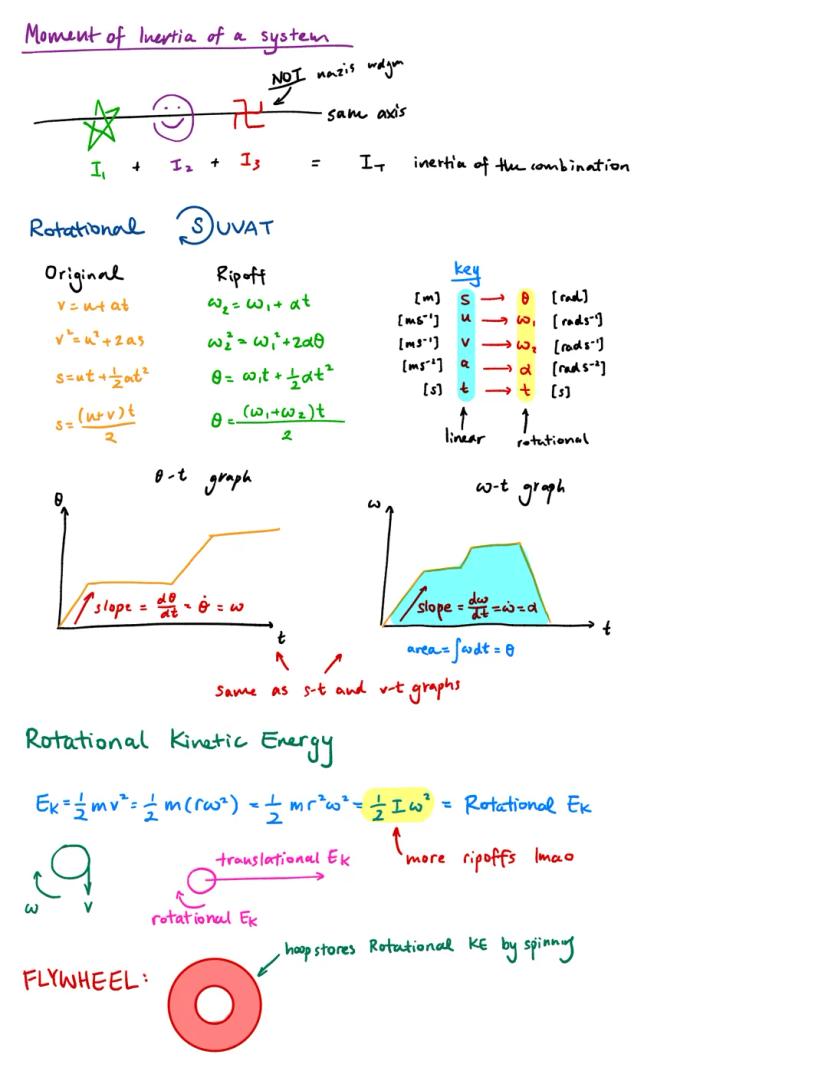 Moment of Inertia of a system
NOT nazis wdym
same axis
I₁ + I₂ + I₃ = I_T inertia of the combination
Rotational SUVAT
Original Ripoff key
v = u + at ω₂ = ω₁ + αt
v² = u² + 2as ω₂² = ω₁² + 2αθ
s = ut + ½at² θ = ω₁t + ½αt²
s = (u+v)t/2 θ = (ω₁+ω₂)t/2
[m] s → θ [rad]
[ms⁻¹] u → ω₁ [rads⁻¹]
[ms⁻¹] v → ω₂ [rads⁻¹]
[ms⁻²] a → α [rads⁻²]
[s] t → t [s]
linear rotational
θ-t graph
θ
slope = dθ/dt = θ̇ = ω
t
ω-t graph
ω
slope = dω/dt = ω̇ = α
t
area = ∫ωdt = θ
same as s-t and v-t graphs
Rotational Kinetic Energy
E_K = ½mv² = ½m(rω²) = ½mr²ω² = ½Iω² = Rotational E_K
more ripoffs lmao
ω v
translational E_K
rotational E_K
hoop stores Rotational KE by spinning
FLYWHEEL: